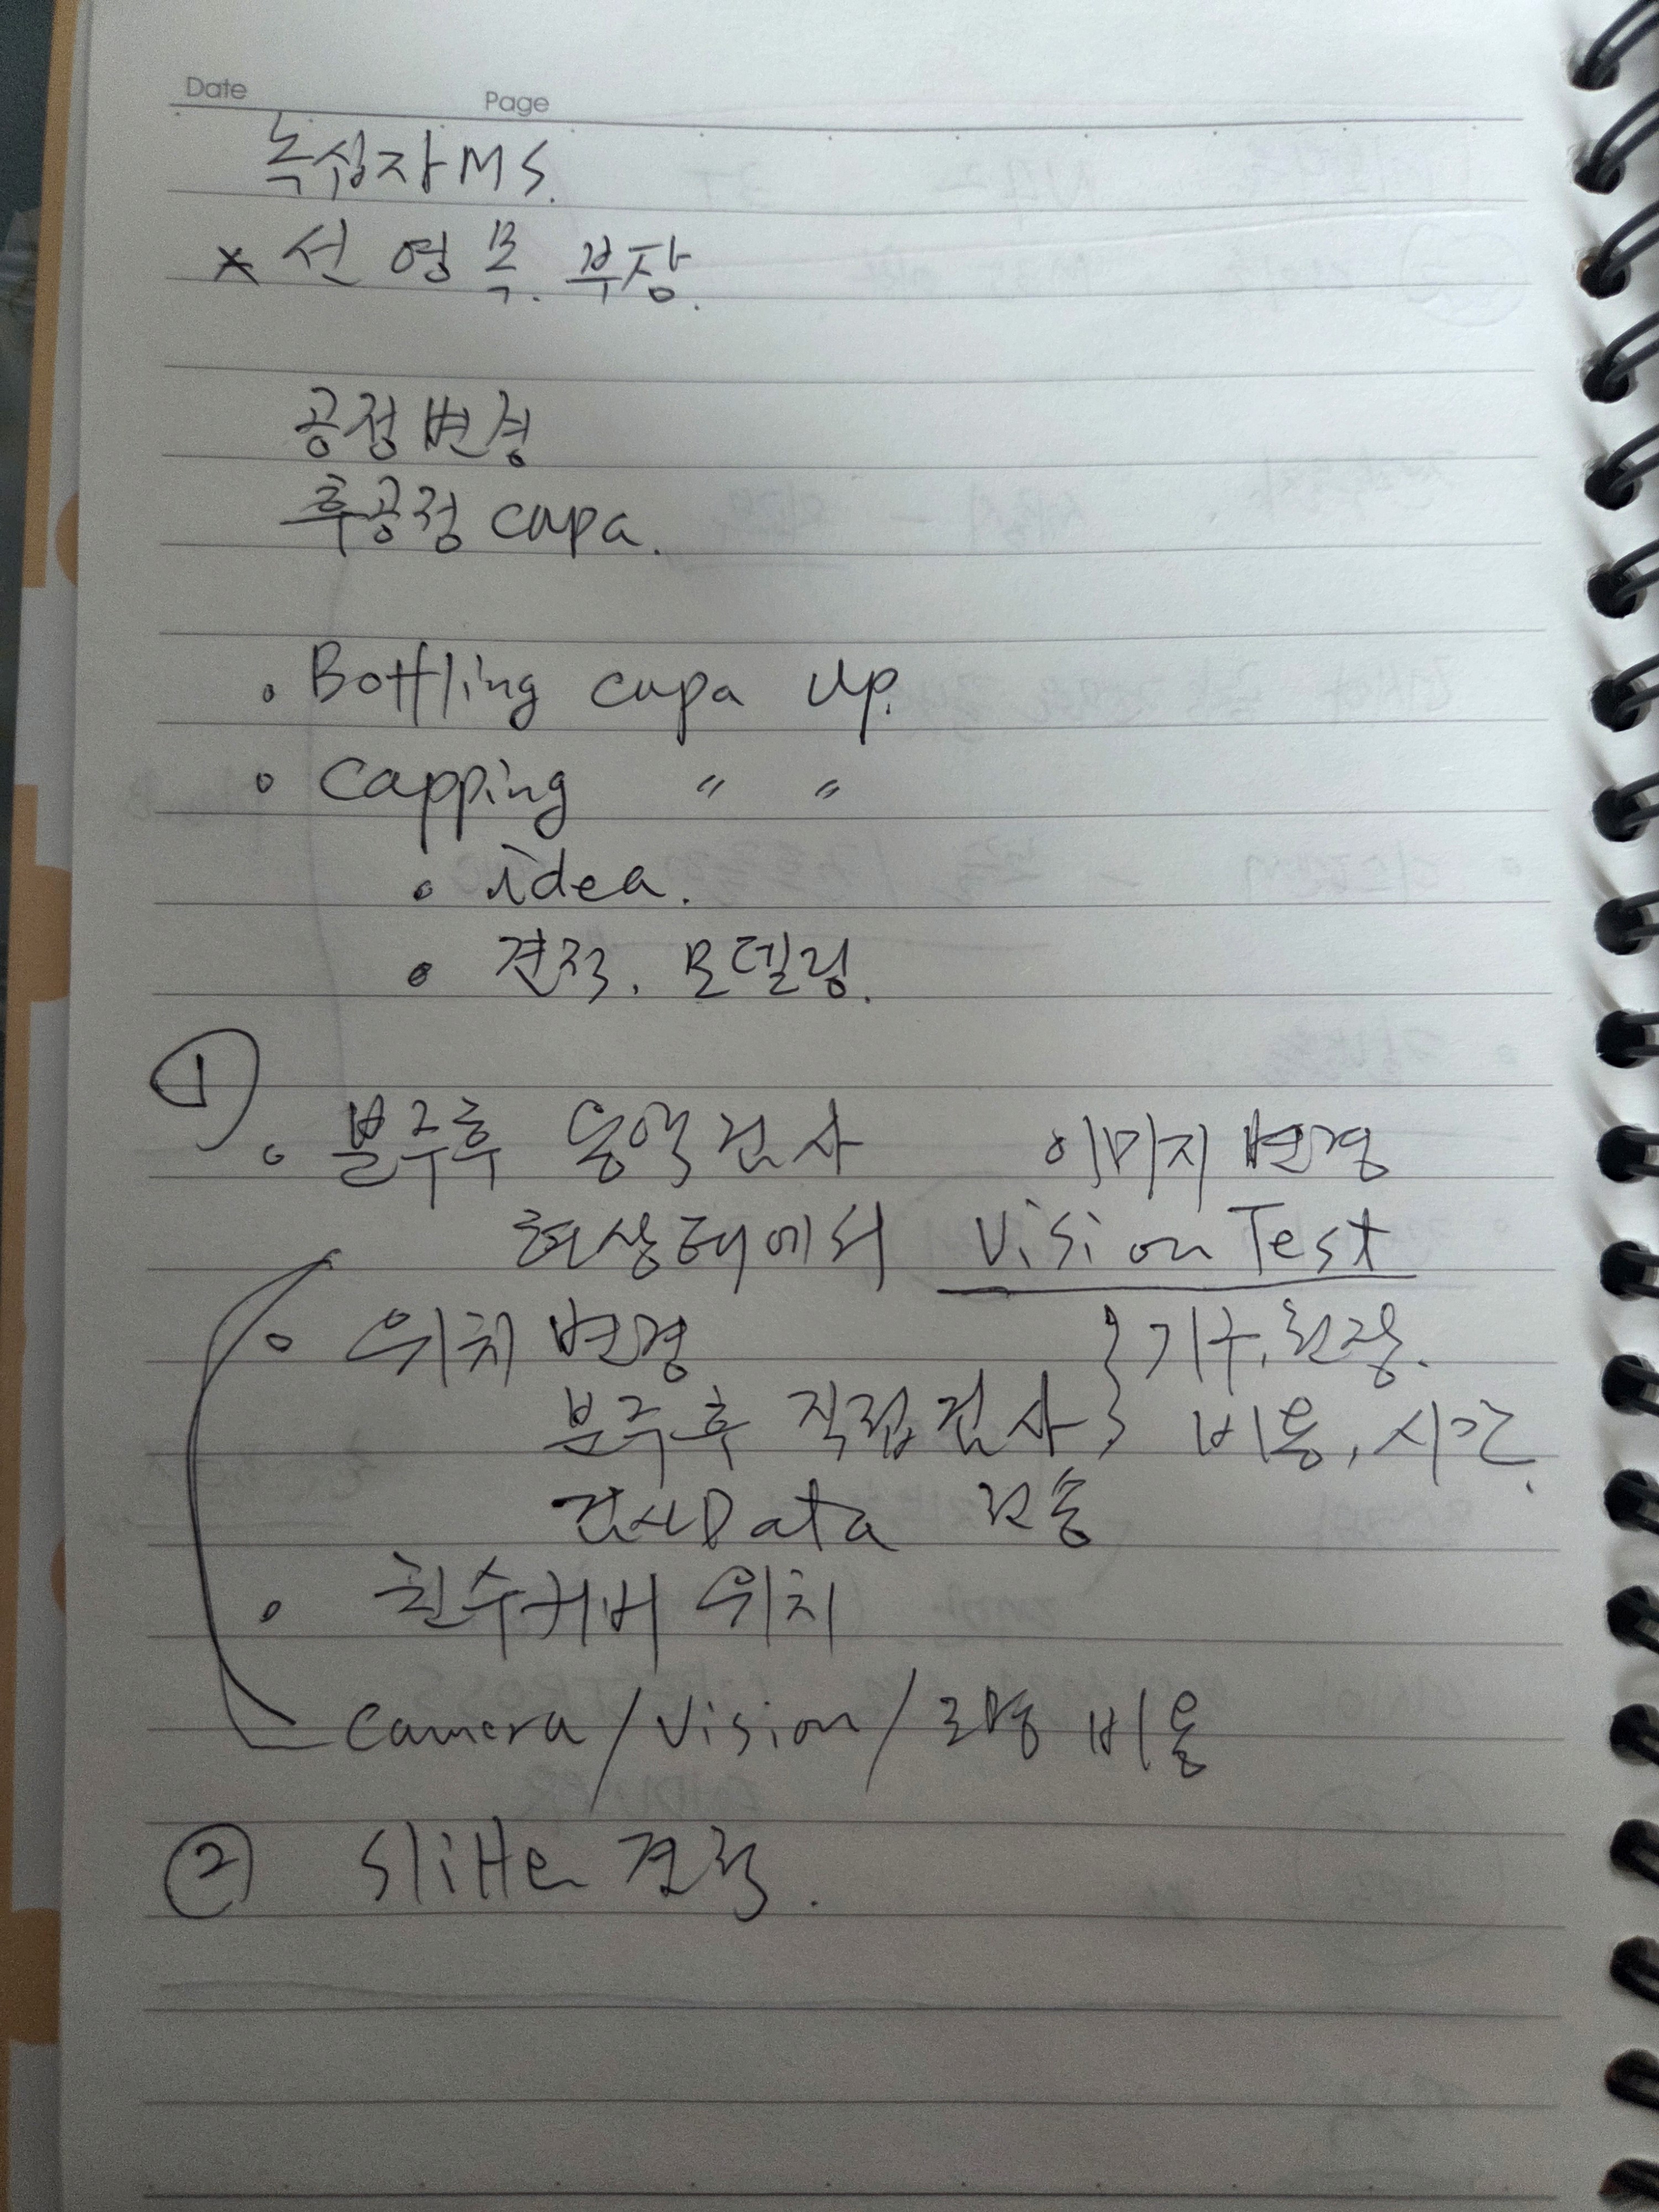 Date Page
녹십자MS.
* 선영목. 부장.
공정변경
후공정 capa.
• Bottling capa up.
• Capping 〃 〃
• idea.
• 견적. 모델링.
① • 분주후 용액검사 이미지 변경
현상태에서 Vision Test
• 위치 변경 } 기구,
분주후 직접검사 } 비용, 시간.
검사Data 전송
커버 위치
Camera/Vision/조명 비용
② Slitter 견적.